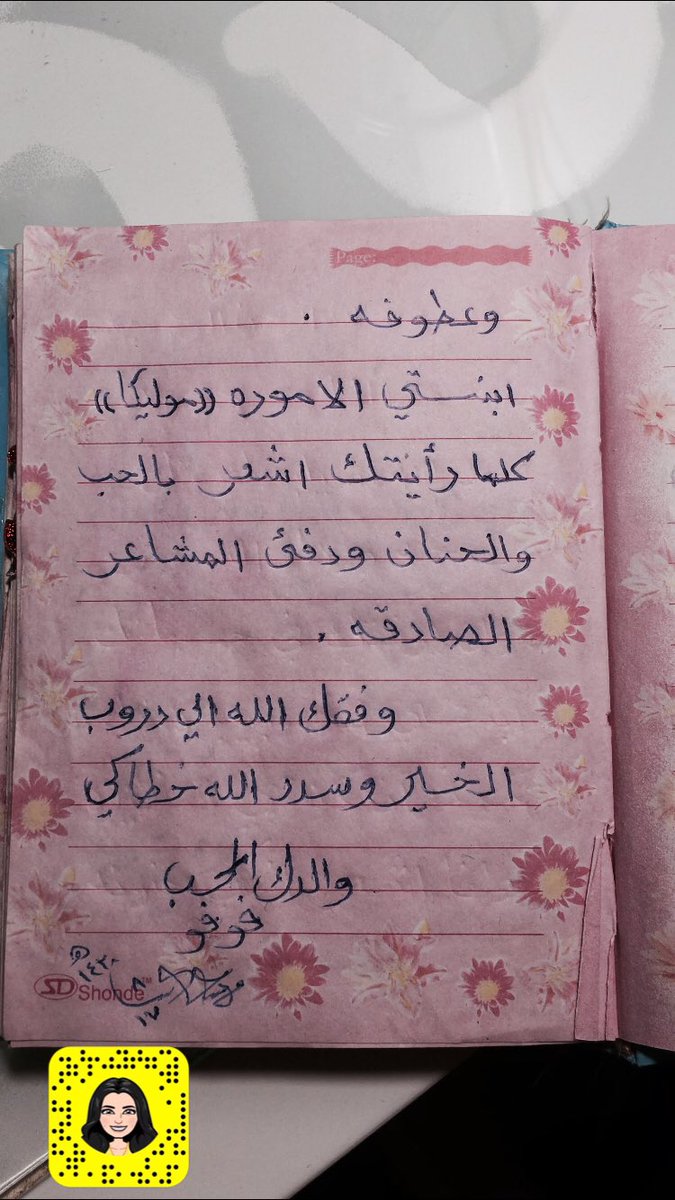 Page:
وعطوفه .
ابنستي الاموره ((موليكا))
كلما رأيتك اشعر بالحب
والحنان ودفئ المشاعر
الصادقه .
وفقك الله الي دروب
الخير وسدد الله خطاكي
والدك المحب
فوفو
١٤٣٠ه
SD Shonde™